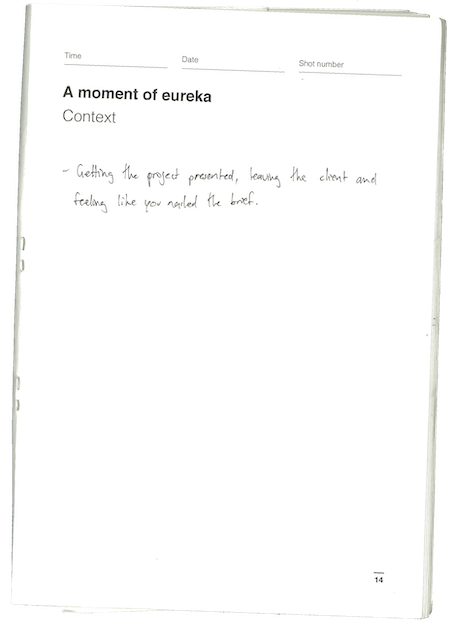 Time
Date
Shot number
A moment of eureka
Context
- Getting the project presented, leaving the client and
feeling like you nailed the brief.
14